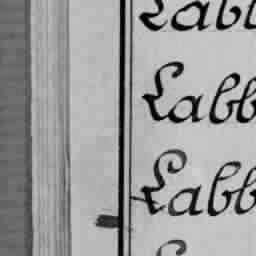 Labb
Labb
Labb